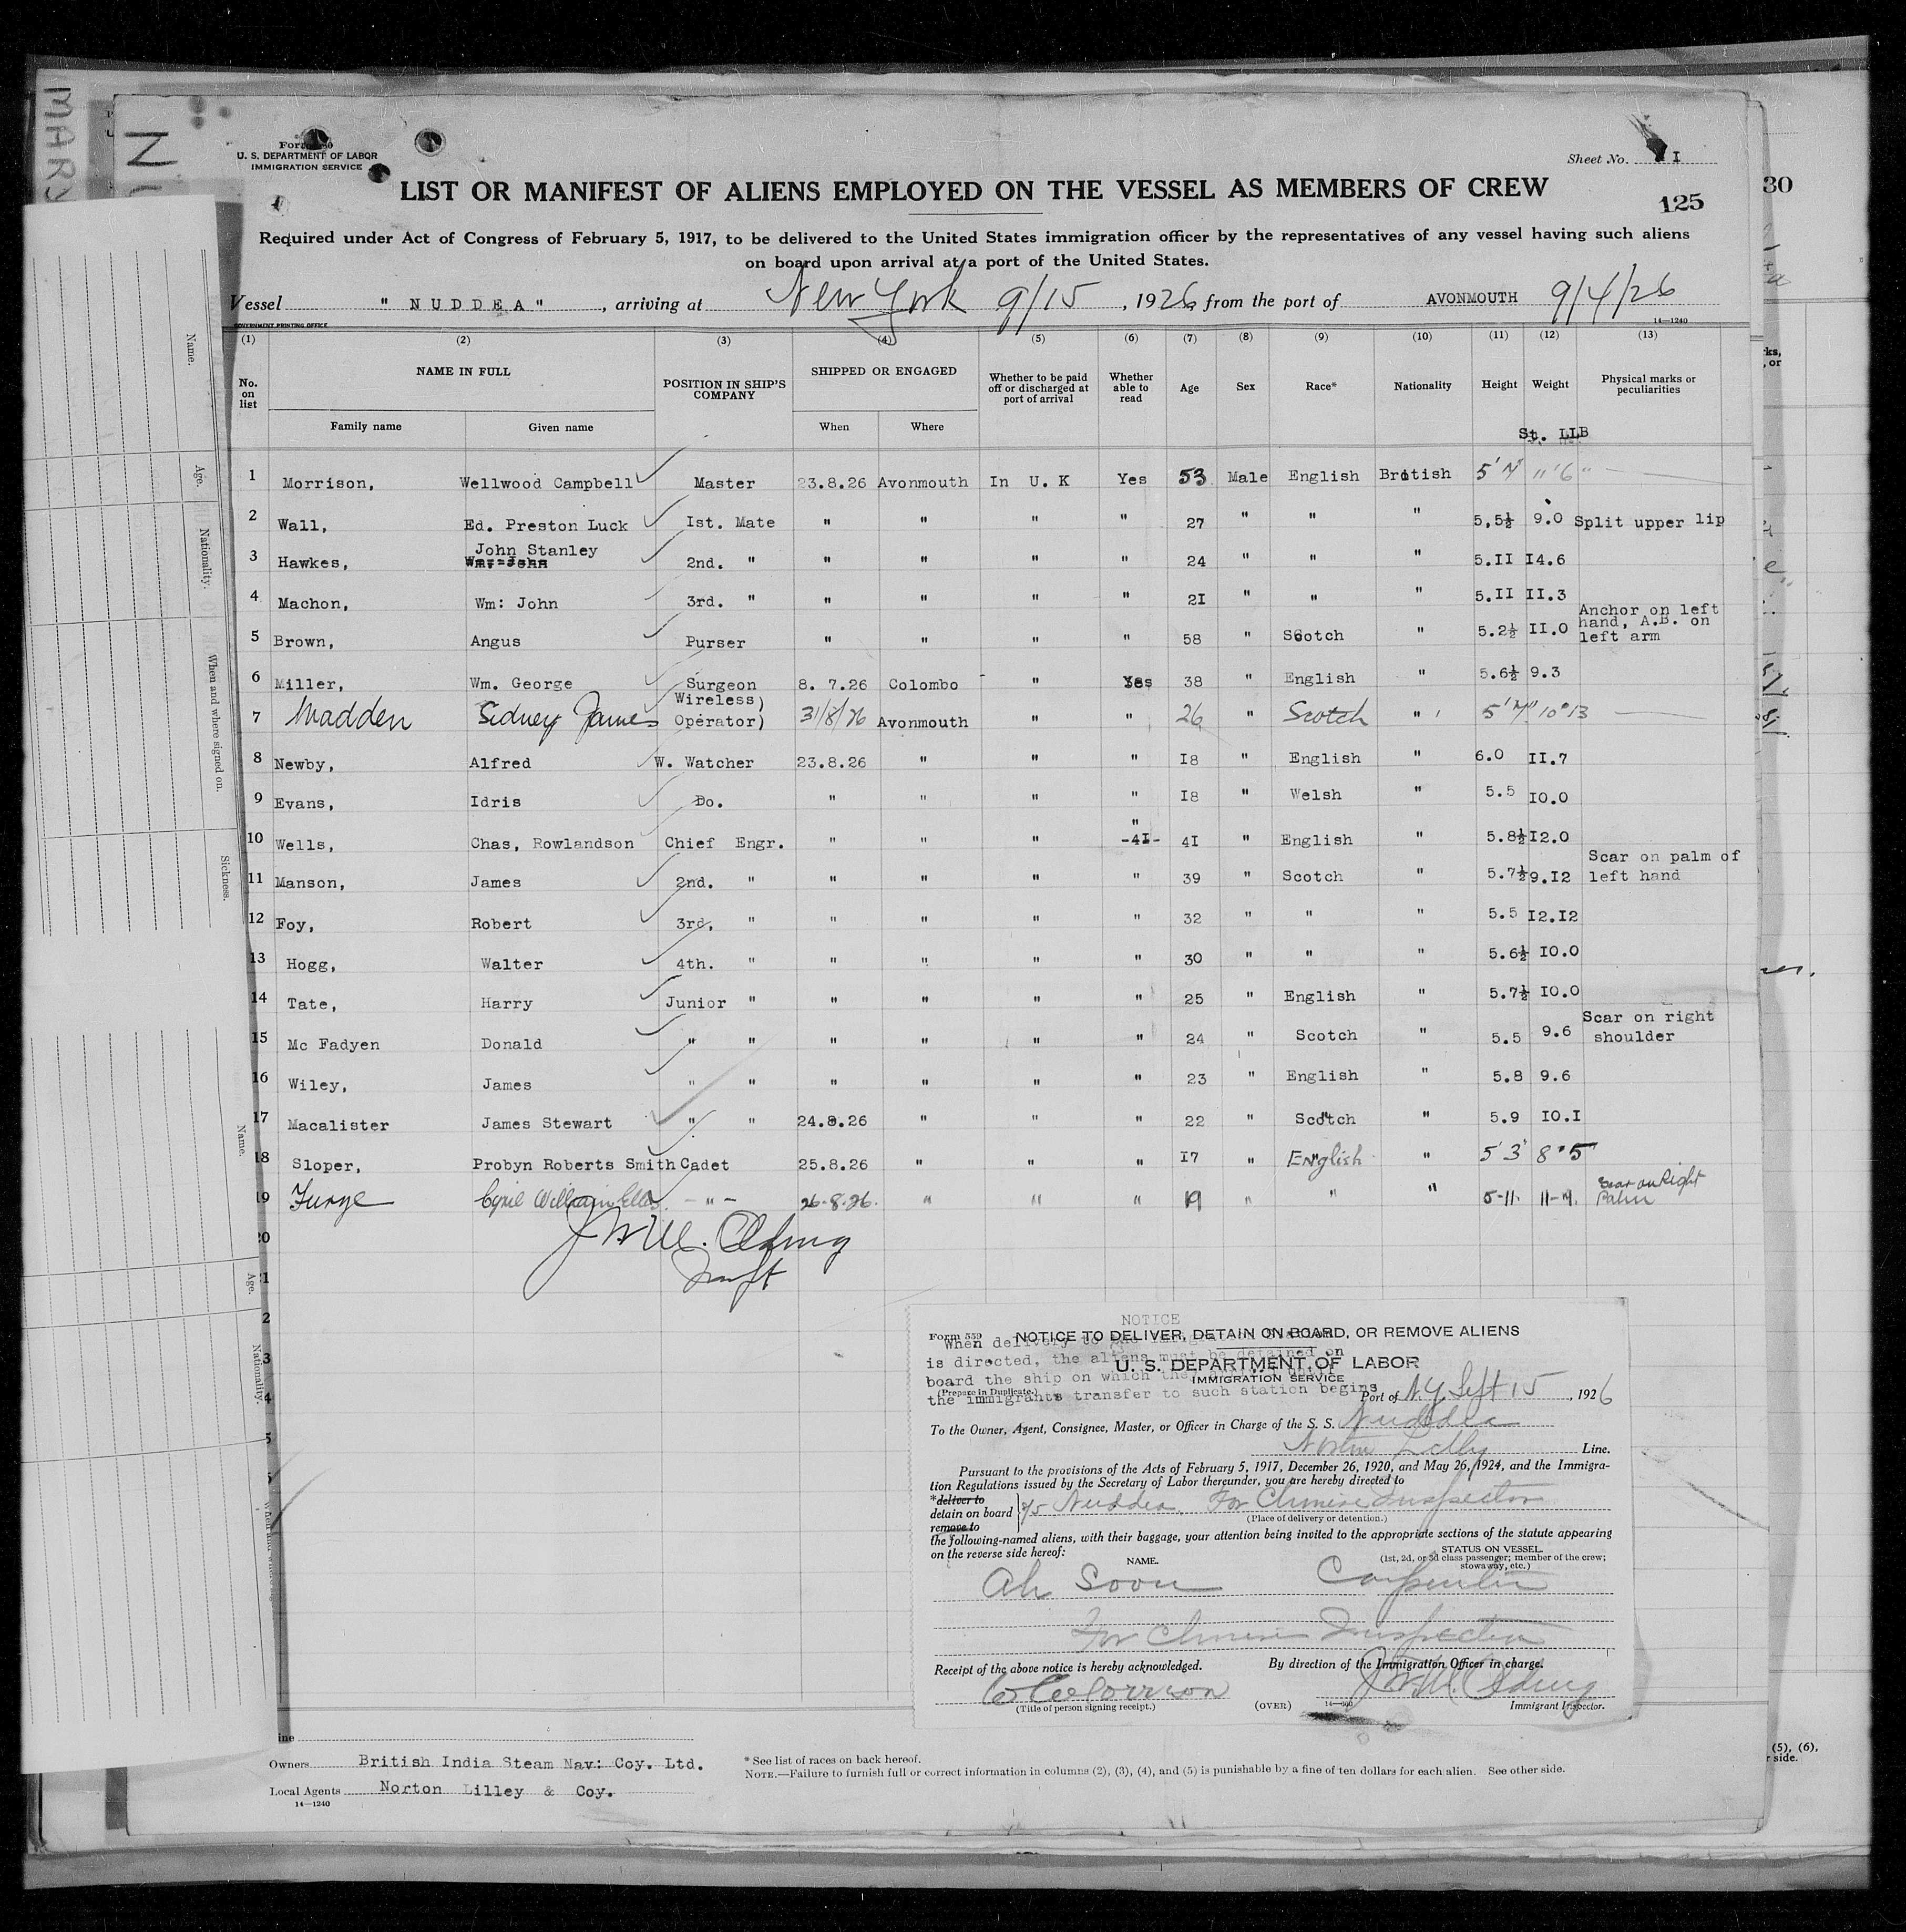 MARY
Form 680
U. S. DEPARTMENT OF LABOR
IMMIGRATION SERVICE
Sheet No. I
LIST OR MANIFEST OF ALIENS EMPLOYED ON THE VESSEL AS MEMBERS OF CREW
125
30
Required under Act of Congress of February 5, 1917, to be delivered to the United States immigration officer by the representatives of any vessel having such aliens
on board upon arrival at a port of the United States.
Vessel "NUDDEA", arriving at New York 9/15, 1926, from the port of AVONMOUTH 9/4/26
GOVERNMENT PRINTING OFFICE 14—1240
(1) (2) (3) (4) (5) (6) (7) (8) (9) (10) (11) (12) (13)
No. on list NAME IN FULL POSITION IN SHIP'S COMPANY SHIPPED OR ENGAGED Whether to be paid off or discharged at port of arrival Whether able to read Age Sex Race* Nationality Height Weight Physical marks or peculiarities
Family name Given name When Where
St. LLB
1 Morrison, Wellwood Campbell Master 23.8.26 Avonmouth In U.K Yes 53 Male English British 5'7" 11'6"
2 Wall, Ed. Preston Luck Ist. Mate " " " " 27 " " " 5,5½ 9.0 Split upper lip
3 Hawkes, John Stanley Wm: John 2nd. " " " " " 24 " " " 5.II I4.6
4 Machon, Wm: John 3rd. " " " " " 2I " " " 5.II II.3
5 Brown, Angus Purser " " " " 58 " Scotch " 5.2½ II.0 Anchor on left hand, A.B. on left arm
6 Miller, Wm. George Surgeon 8. 7.26 Colombo " Yes 38 " English " 5.6½ 9.3
7 Madden Sidney James Wireless) Operator) 31/8/26 Avonmouth " " 26 " Scotch " 5'7" 10"13
8 Newby, Alfred W. Watcher 23.8.26 " " " I8 " English " 6.0 II.7
9 Evans, Idris Do. " " " " I8 " Welsh " 5.5 I0.0
10 Wells, Chas, Rowlandson Chief Engr. " " " " -4I- 4I " English " 5.8½ I2.0
11 Manson, James 2nd. " " " " " 39 " Scotch " 5.7½ 9.I2 Scar on palm of left hand
12 Foy, Robert 3rd. " " " " " 32 " " " 5.5 I2.I2
13 Hogg, Walter 4th. " " " " " 30 " " " 5.6½ I0.0
14 Tate, Harry Junior " " " " " 25 " English " 5.7½ I0.0
15 Mc Fadyen Donald " " " " " " 24 " Scotch " 5.5 9.6 Scar on right shoulder
16 Wiley, James " " " " " " 23 " English " 5.8 9.6
17 Macalister James Stewart " " 24.8.26 " " " 22 " Scotch " 5.9 I0.I
18 Sloper, Probyn Roberts Smith Cadet 25.8.26 " " " I7 " English " 5'3" 8"5
19 Furge Cyril William Ellis - " - 26.8.26. " " " 19 " " " 5-11. 11-7. Scar on Right Palm
20
NOTICE
When delivery to
is directed, the aliens must be detained on
board the ship on which the
the immigrants transfer to such station begins
Form 559 NOTICE TO DELIVER, DETAIN ON BOARD, OR REMOVE ALIENS
U. S. DEPARTMENT OF LABOR
IMMIGRATION SERVICE
(Prepare in Duplicate.)
Port of N.Y. Sept 15, 1926
To the Owner, Agent, Consignee, Master, or Officer in Charge of the S. S. Nuddea
Norton Lilly Line.
Pursuant to the provisions of the Acts of February 5, 1917, December 26, 1920, and May 26, 1924, and the Immigra-
tion Regulations issued by the Secretary of Labor thereunder, you are hereby directed to
*deliver to
detain on board S/S Nuddea, For Chinese Inspector
remove to
(Place of delivery or detention.)
the following-named aliens, with their baggage, your attention being invited to the appropriate sections of the statute appearing
on the reverse side hereof:
NAME. STATUS ON VESSEL.
(1st, 2d, or 3d class passenger; member of the crew;
stowaway, etc.)
Ah Soon Carpenter
For Chinese Inspection
Receipt of the above notice is hereby acknowledged. By direction of the Immigration Officer in charge.
W C Morrison
(Title of person signing receipt.) (OVER) Immigrant Inspector.
Owners British India Steam Nav: Coy. Ltd.
Local Agents Norton Lilley & Coy.
14—1240
* See list of races on back hereof.
NOTE.—Failure to furnish full or correct information in columns (2), (3), (4), and (5) is punishable by a fine of ten dollars for each alien. See other side.
(5), (6),
r side.
Name.
Age.
Nationality.
When and where signed on.
Sickness.
Name.
Age.
Nationality.